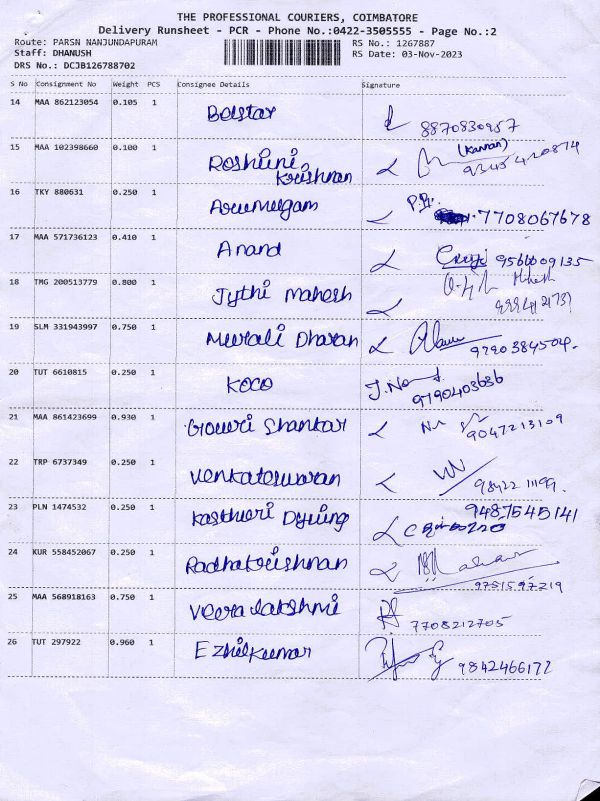 THE PROFESSIONAL COURIERS, COIMBATORE
Delivery Runsheet - PCR - Phone No.:0422-3505555 - Page No.:2
Route: PARSN NANJUNDAPURAM RS No.: 1267887
Staff: DHANUSH RS Date: 03-Nov-2023
DRS No.: DCJB126788702
S No Consignment No Weight PCS Consignee Details Signature
14 MAA 862123054 0.105 1 Belstar 8870830957
15 MAA 102398660 0.100 1 Roshini Krishnan (Kannan)
16 TKY 880631 0.250 1 Arumugam 7708067678
17 MAA 571736123 0.410 1 Anand
18 TMG 200513779 0.800 1 Jythi Mahesh
19 SLM 331943997 0.750 1 Murali Dharan 9790384504.
20 TUT 6610815 0.250 1 KOCO 9790403636
21 MAA 861423699 0.930 1 Gowri Shankar 9047213109
22 TRP 6737349 0.250 1 Venkateswaran
23 PLN 1474532 0.250 1 Kasthuri Dyeing 9487545141
24 KUR 558452067 0.250 1 Radhakrishnan
25 MAA 568918163 0.750 1 Veeralakshmi 7708212705
26 TUT 297922 0.960 1 Ezhilkumar 9842466172